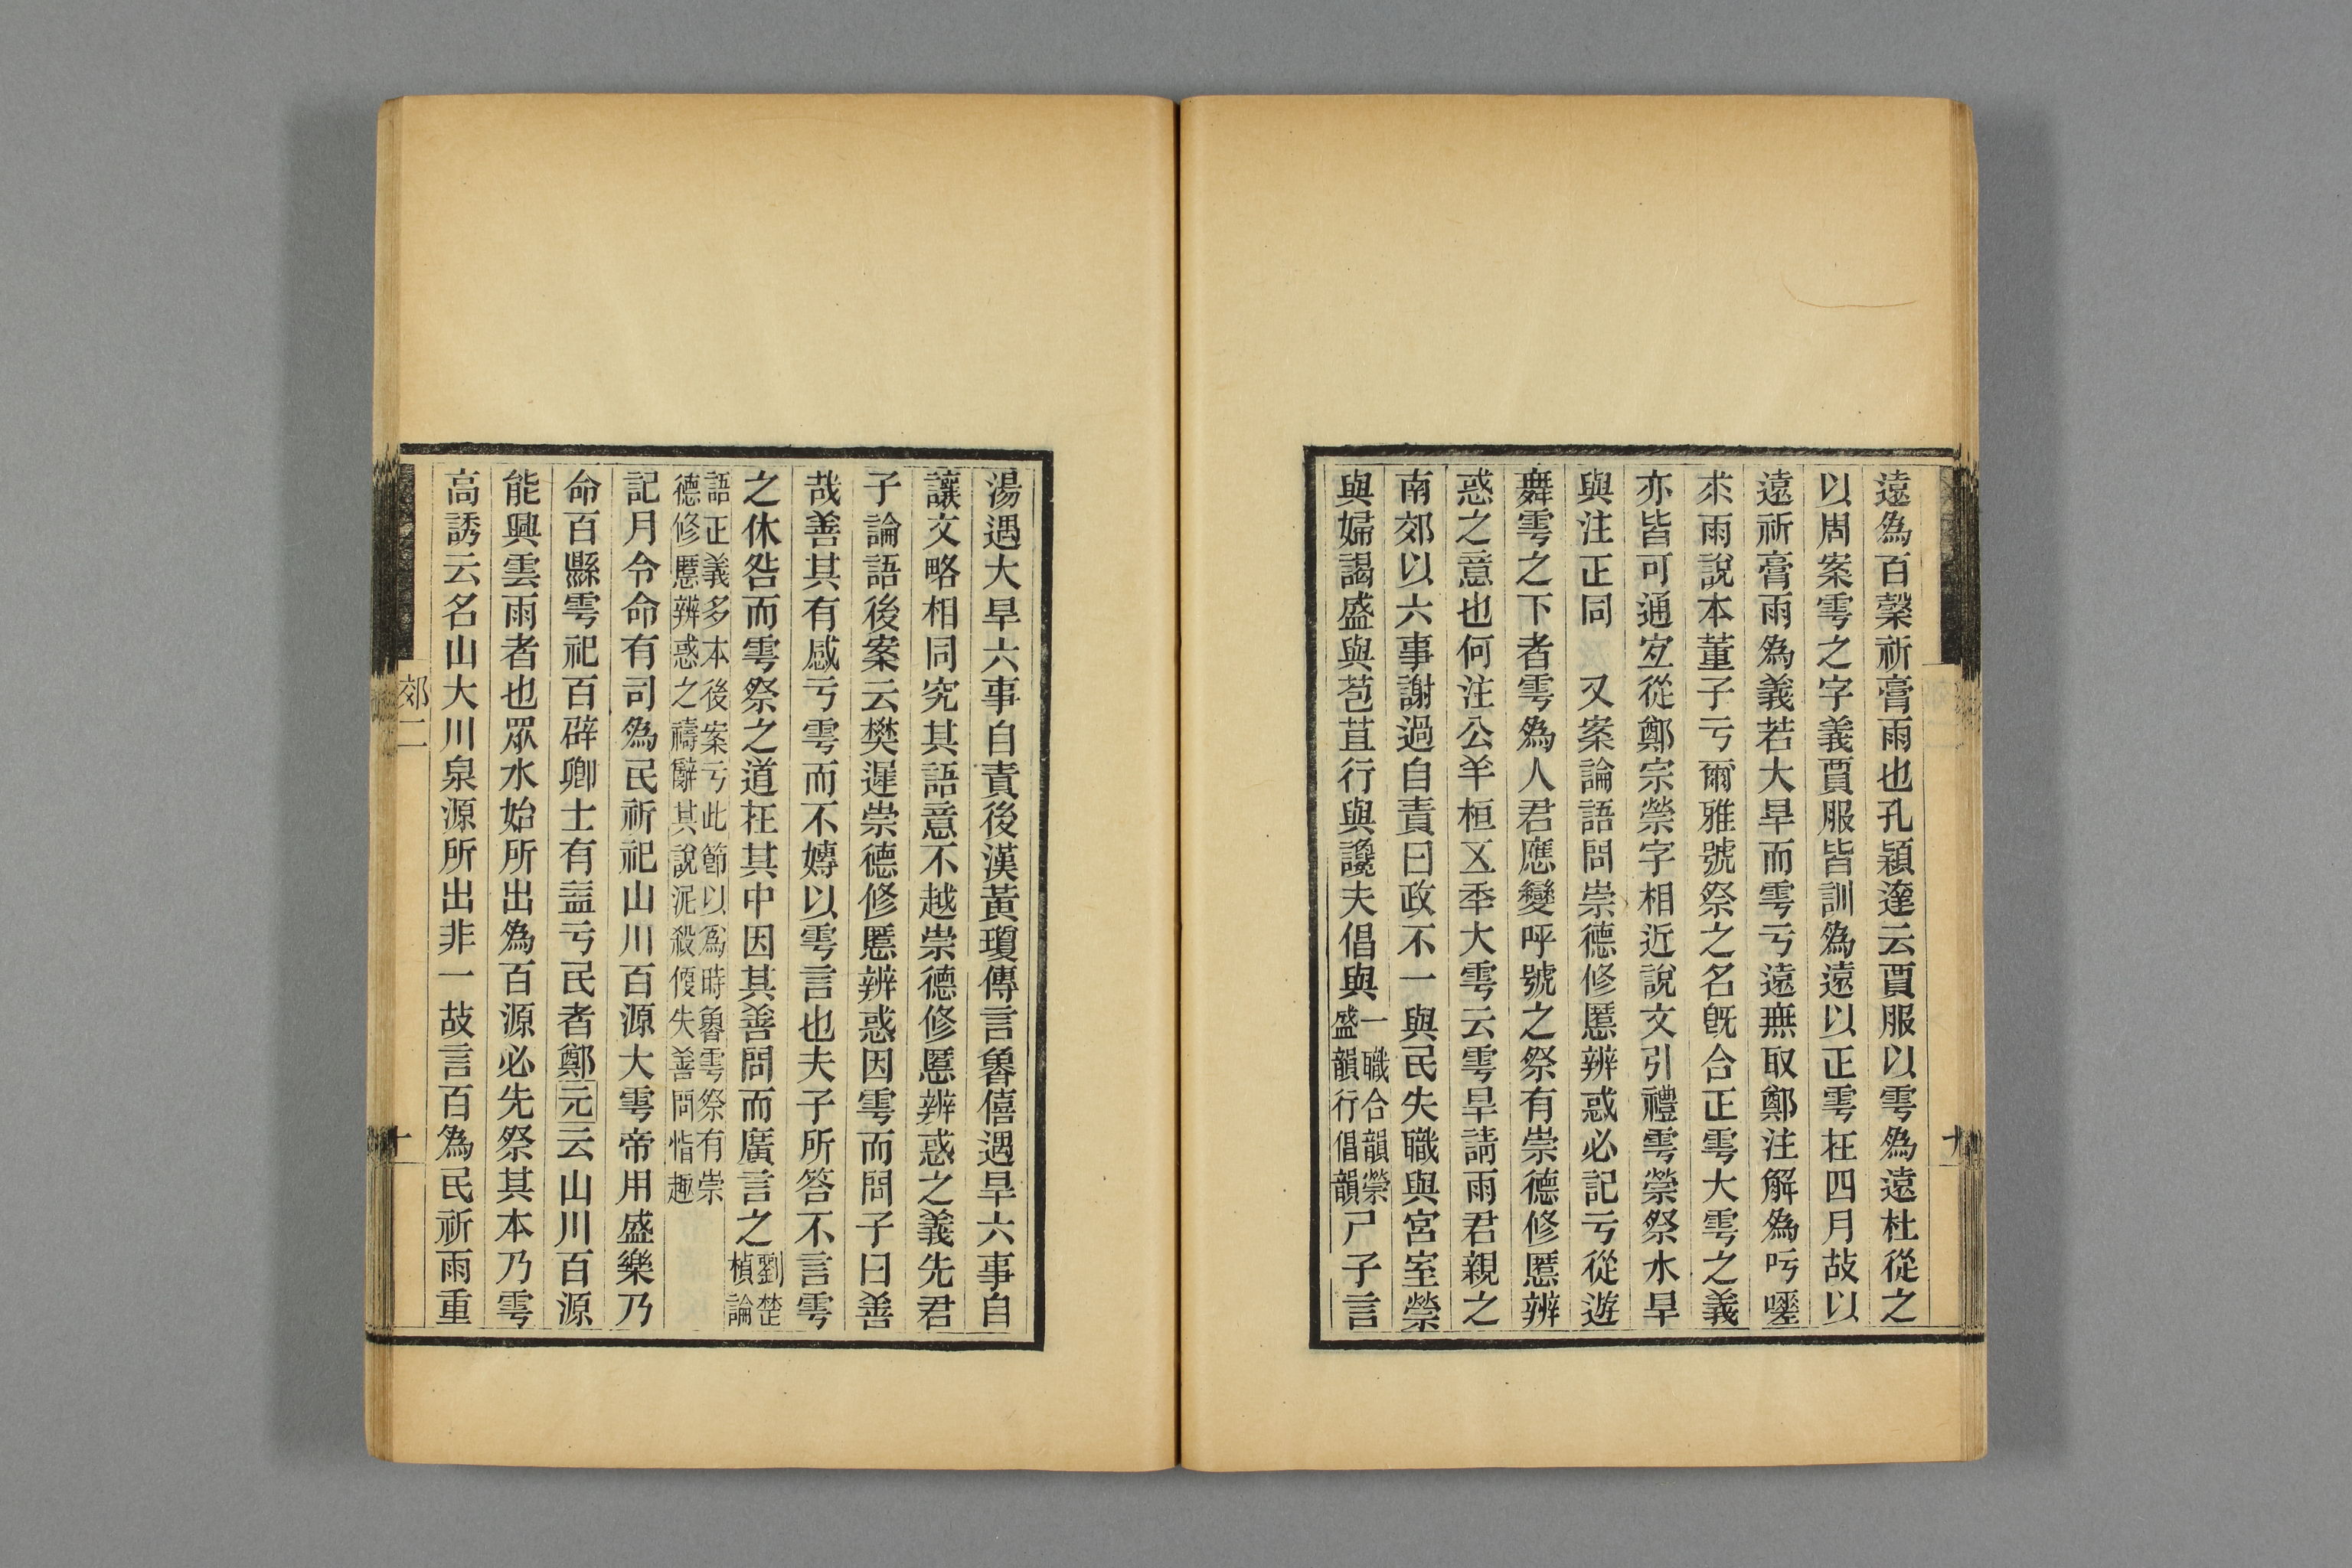 遠為百榖祈膏雨也孔穎達云賈服以雩為遠杜從之
以周案雩之字義賈服皆訓為遠以正雩在四月故以
遠祈膏雨為義若大旱而雩亏遠無取鄭注解為吁嗟
求雨說本董子亏爾雅號祭之名旣合正雩大雩之義
亦皆可通宐從鄭宗禜字相近說文引禮雩禜祭水旱
與注正同　又案論語問崇德修慝辨惑必記亏從遊
舞雩之下者雩為人君應變呼號之祭有崇德修慝辨
惑之意也何注公羊桓㐅秊大雩云雩旱請雨君親之
南郊以六事謝過自責曰政不一與民失職與宮室榮
與婦謁盛與苞苴行與讒夫倡與一職合韻榮
盛韻行倡韻尸子言
湯遇大旱六事自責後漢黃瓊傳言魯僖遇旱六事自
讓文略相同究其語意不越崇德修慝辨惑之義先君
子論語後案云樊遲崇德修慝辨惑因雩而問子曰善
哉善其有感亏雩而不嫥以雩言也夫子所答不言雩
之休咎而雩祭之道在其中因其善問而廣言之劉楚
楨論
語正義多本後案亏此節以為時魯雩祭有崇
德修慝辨惑之禱辭其說泥殺復失善問恉趣
記月令命有司為民祈祀山川百源大雩帝用盛樂乃
命百縣雩祀百辟卿士有益亏民者鄭元云山川百源
能興雲雨者也眾水始所出為百源必先祭其本乃雩
高誘云名山大川泉源所出非一故言百為民祈雨重
郊二
十